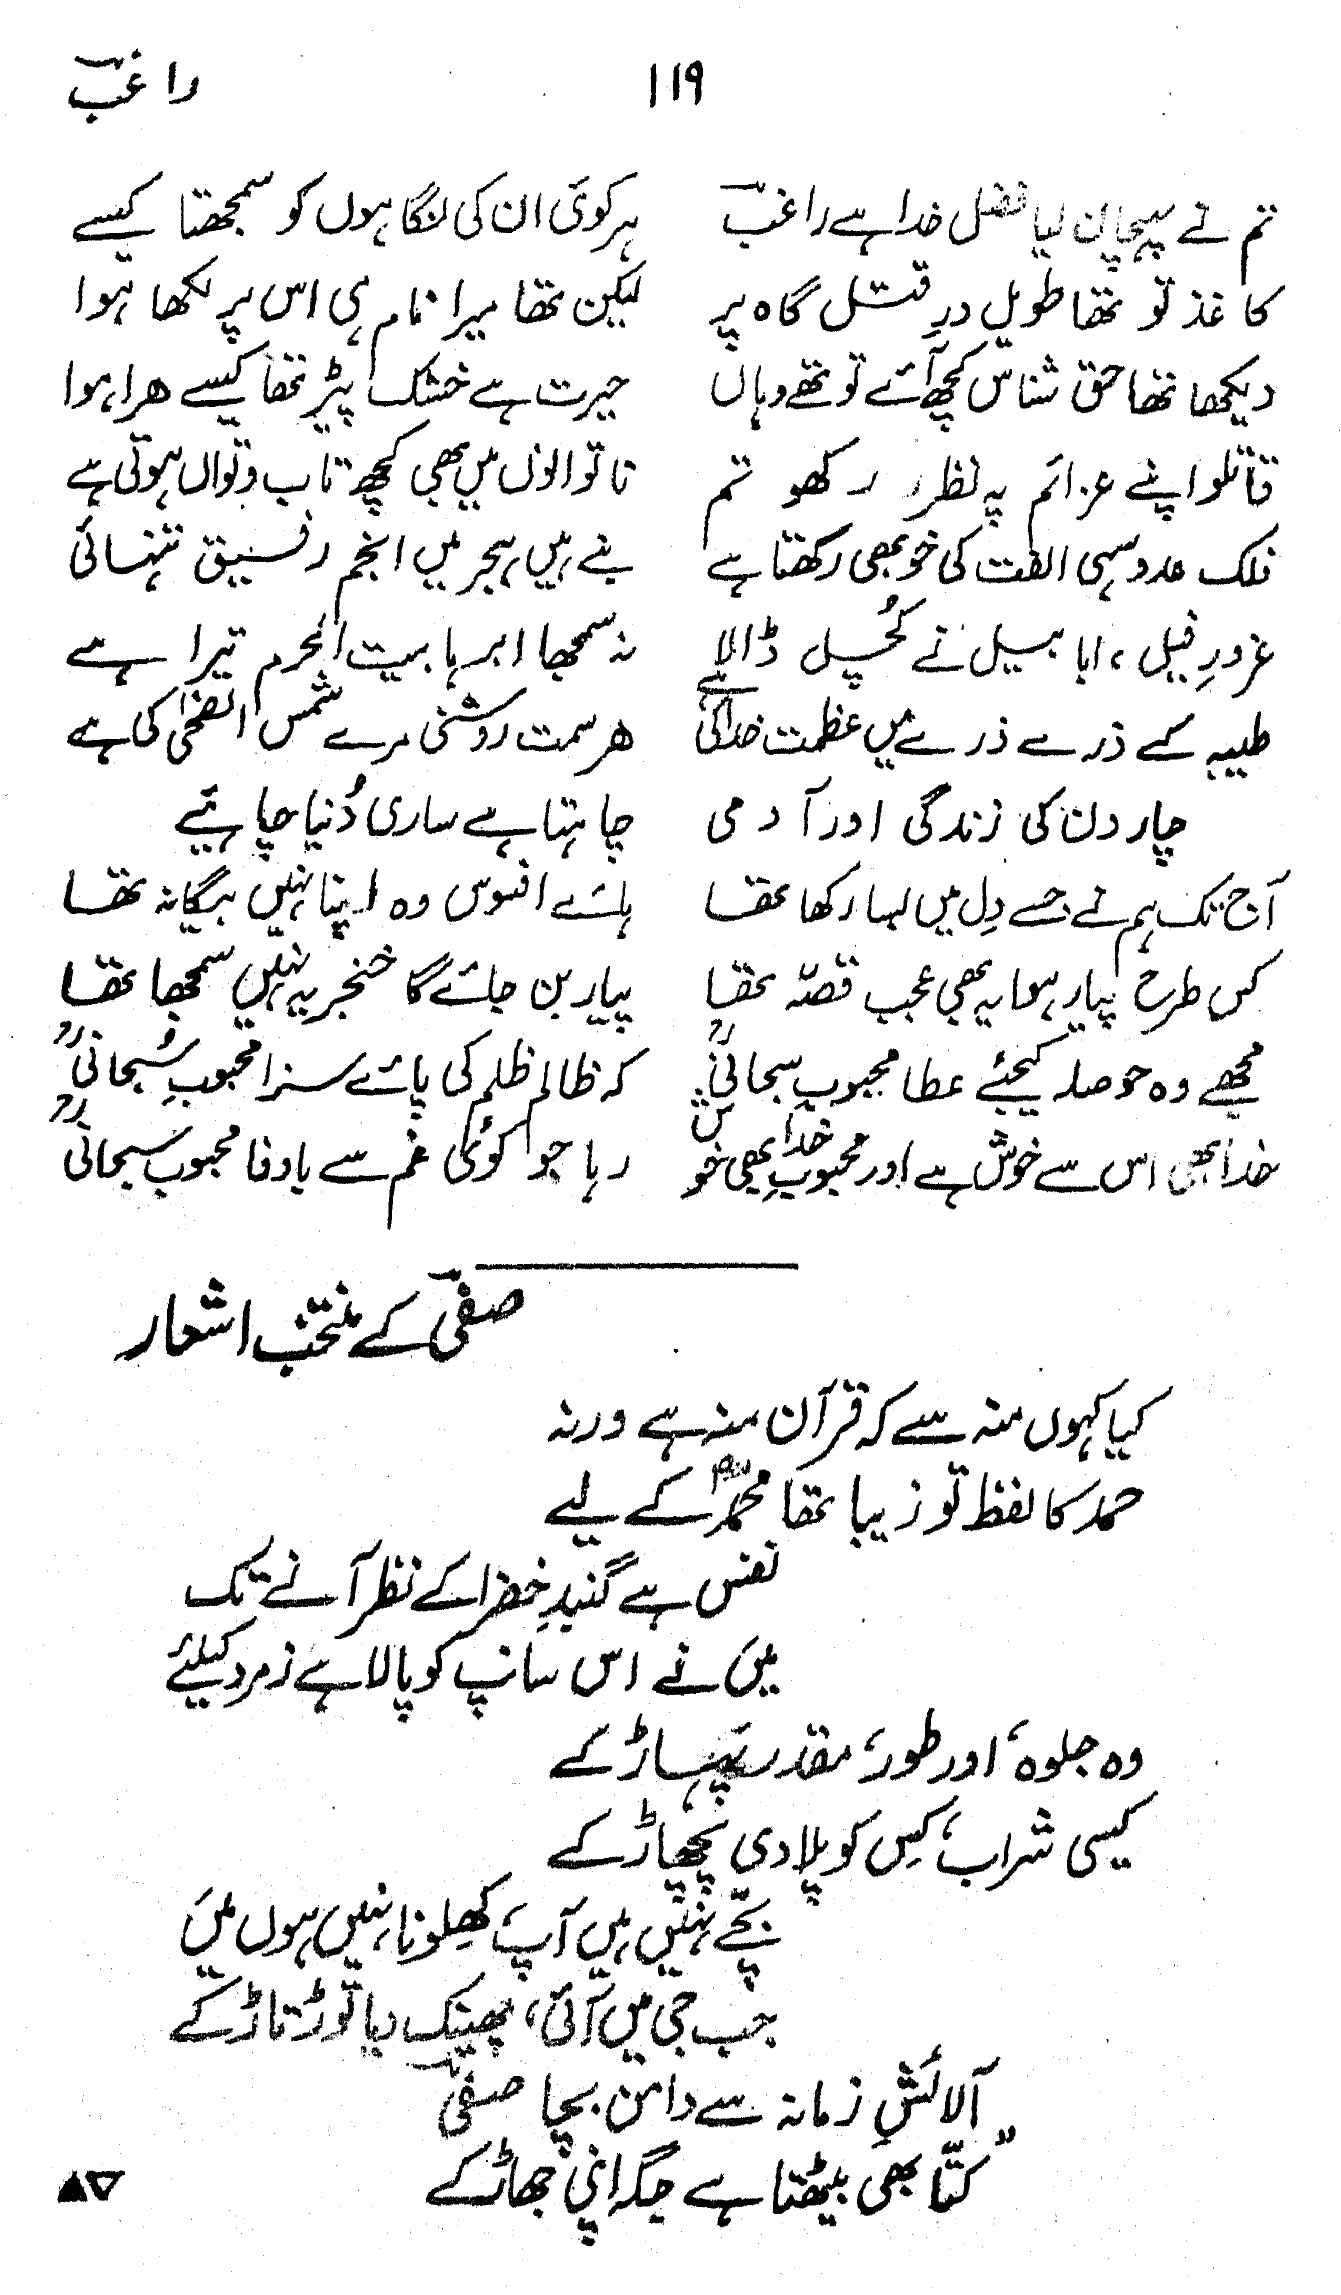 راغبؔ
۱۱۹
تم نے پہچان لیا فضل خدا ہے راغبؔ ہر کوئی ان کی نگاہوں کو سمجھتا کیسے
کاغذ تو تھا طویل درِ قتل گاہ پر لیکن تھا میرا نام ہی اس پر لکھا ہوا
دیکھا تھا حق شناس کچھ آئے تو تھے وہاں حیرت ہے خشک پیڑ تھا کیسے ھرا ہوا
قاتلو اپنے عزائم پہ نظر رکھو تم ناتوانوں میں بھی کچھ تاب وتواں ہوتی ہے
فلک عدو سہی الفت کی خو بھی رکھتا ہے بنے ہیں ہجر میں انجم رفیق تنہائی
غرورِ فیل، ابابیل نے کُچل ڈالا نہ سمجھا ابرہا بیت الحرم تیرا ہے
طیبہ کے ذرے ذرے میں عظمت خدا کی ہے ھر سمت روشنی مرے شمس الضحیٰ کی ہے
چار دن کی زندگی اور آدمی چاہتا ہے ساری دُنیا چاہئیے
آج تک ہم نے جسے دِل میں بسا رکھا تھا ہائے افسوس وہ اپنا نہیں بیگانہ تھا
کس طرح پیار ہوا یہ بھی عجب قصّہ تھا پیار بن جائے گا خنجر یہ نہیں سمجھا تھا
مجھے وہ حوصلہ کیجئے عطا محبوبِ سبحانیؒ کہ ظالم ظلم کی پائے سزا محبوبِ سُبحانیؒ
خدا بھی اس سے خوش ہے اور محبوبِ خدا بھی خوش رہا جو کوئی غم سے باوفا محبوب سبحانیؒ
صفیؔ کے منتخب اشعار
کیا کہوں منہ سے کہ قرآن منہ ہے ورنہ
حمد کا لفظ تو زیبا تھا محمدؐ کے لیے
نفس ہے گنبدِ خضرا کے نظر آنے تک
میں نے اس سانپ کو پالا ہے زمرد کیلئے
وہ جلوہ، اور طور، مقدر پہاڑ کے
کیسی شراب، کِس کو پلا دی پچھاڑ کے
بچّے نہیں ہیں آپ، کھِلونا نہیں ہوں میں
جب جی میں آئی، پھینک دیا توڑ تاڑ کے
آلائشِ زمانہ سے دامن بچا صفیؔ
”کتّا بھی بیٹھتا ہے جگہ اپنی جھاڑ کے
▲▽